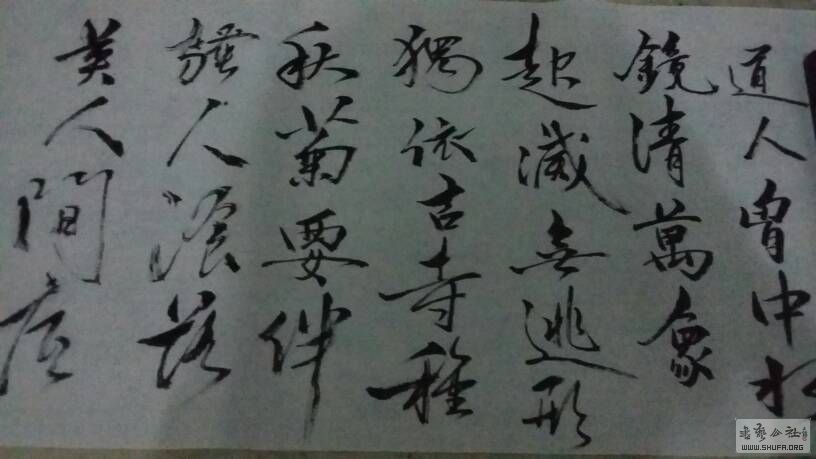 道人胷中水
鏡清萬象
起滅無逃形
獨依古寺種
秋菊要伴
騷人湌落
英人間底
書藝公社
WWW.SHUFA.ORG